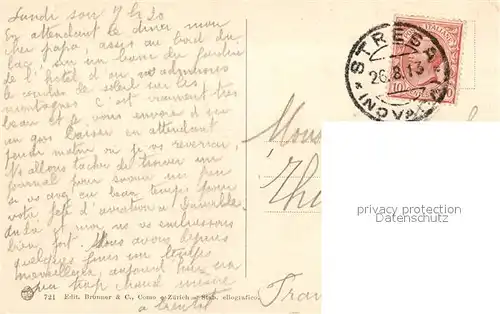 Lundi soir 7 h 20
En attendant le diner mon
cher papa, assis au bord du
lac, sur un banc du jardin
de l'hotel d'ou nous admirons
le coucher de soleil sur les
montagnes c'est vraiment très
beau et je vous envoie d'ici
un gros baiser en attendant
jeudi matin où je vous reverrai,
Ns allons tacher de trouver un
journal pour savoir un peu
si vs avez eu beau temps pour
votre fête d'aviation à
et moi ns vs embrassons
bien fort. Nous avons depuis
quelques jours un temps
merveilleux, aujourd'hui
peu trop chaud même
à
STRESA
26.8.13
10
Mons
Th
Fran
721 Edit. Brunner & C., Como - Zürich - Stab. eliografico.
papyrography
PAPYROGRAPHY.COM